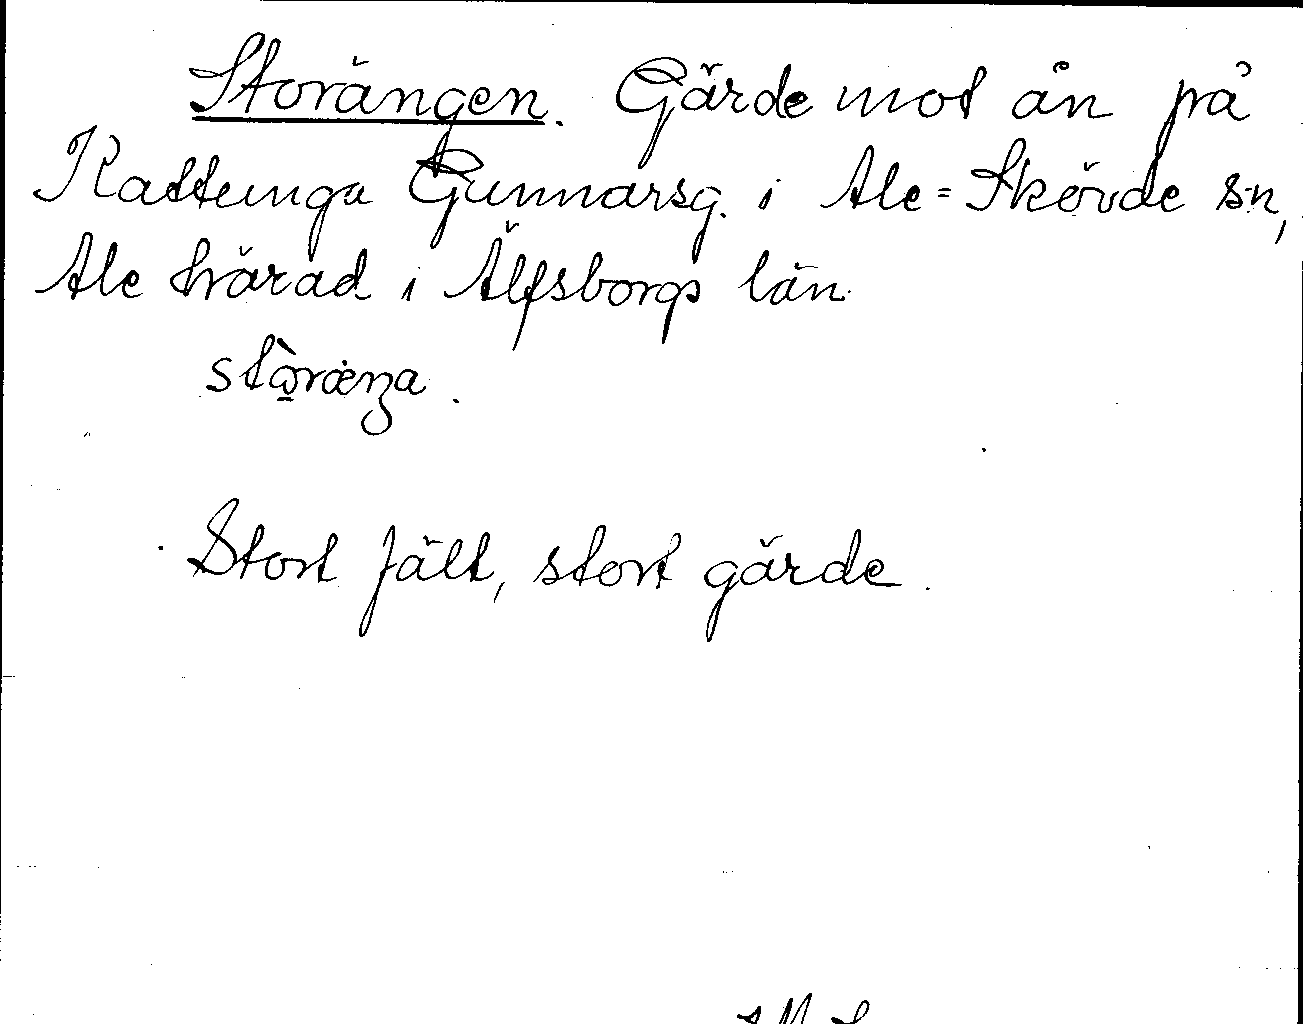 Storängen. Gärde mot ån på
Kattunga Gunnarsg. i Ale=Skövde s:n,
Ale härad i Älfsborgs län.

Stort fält, stort gärde.